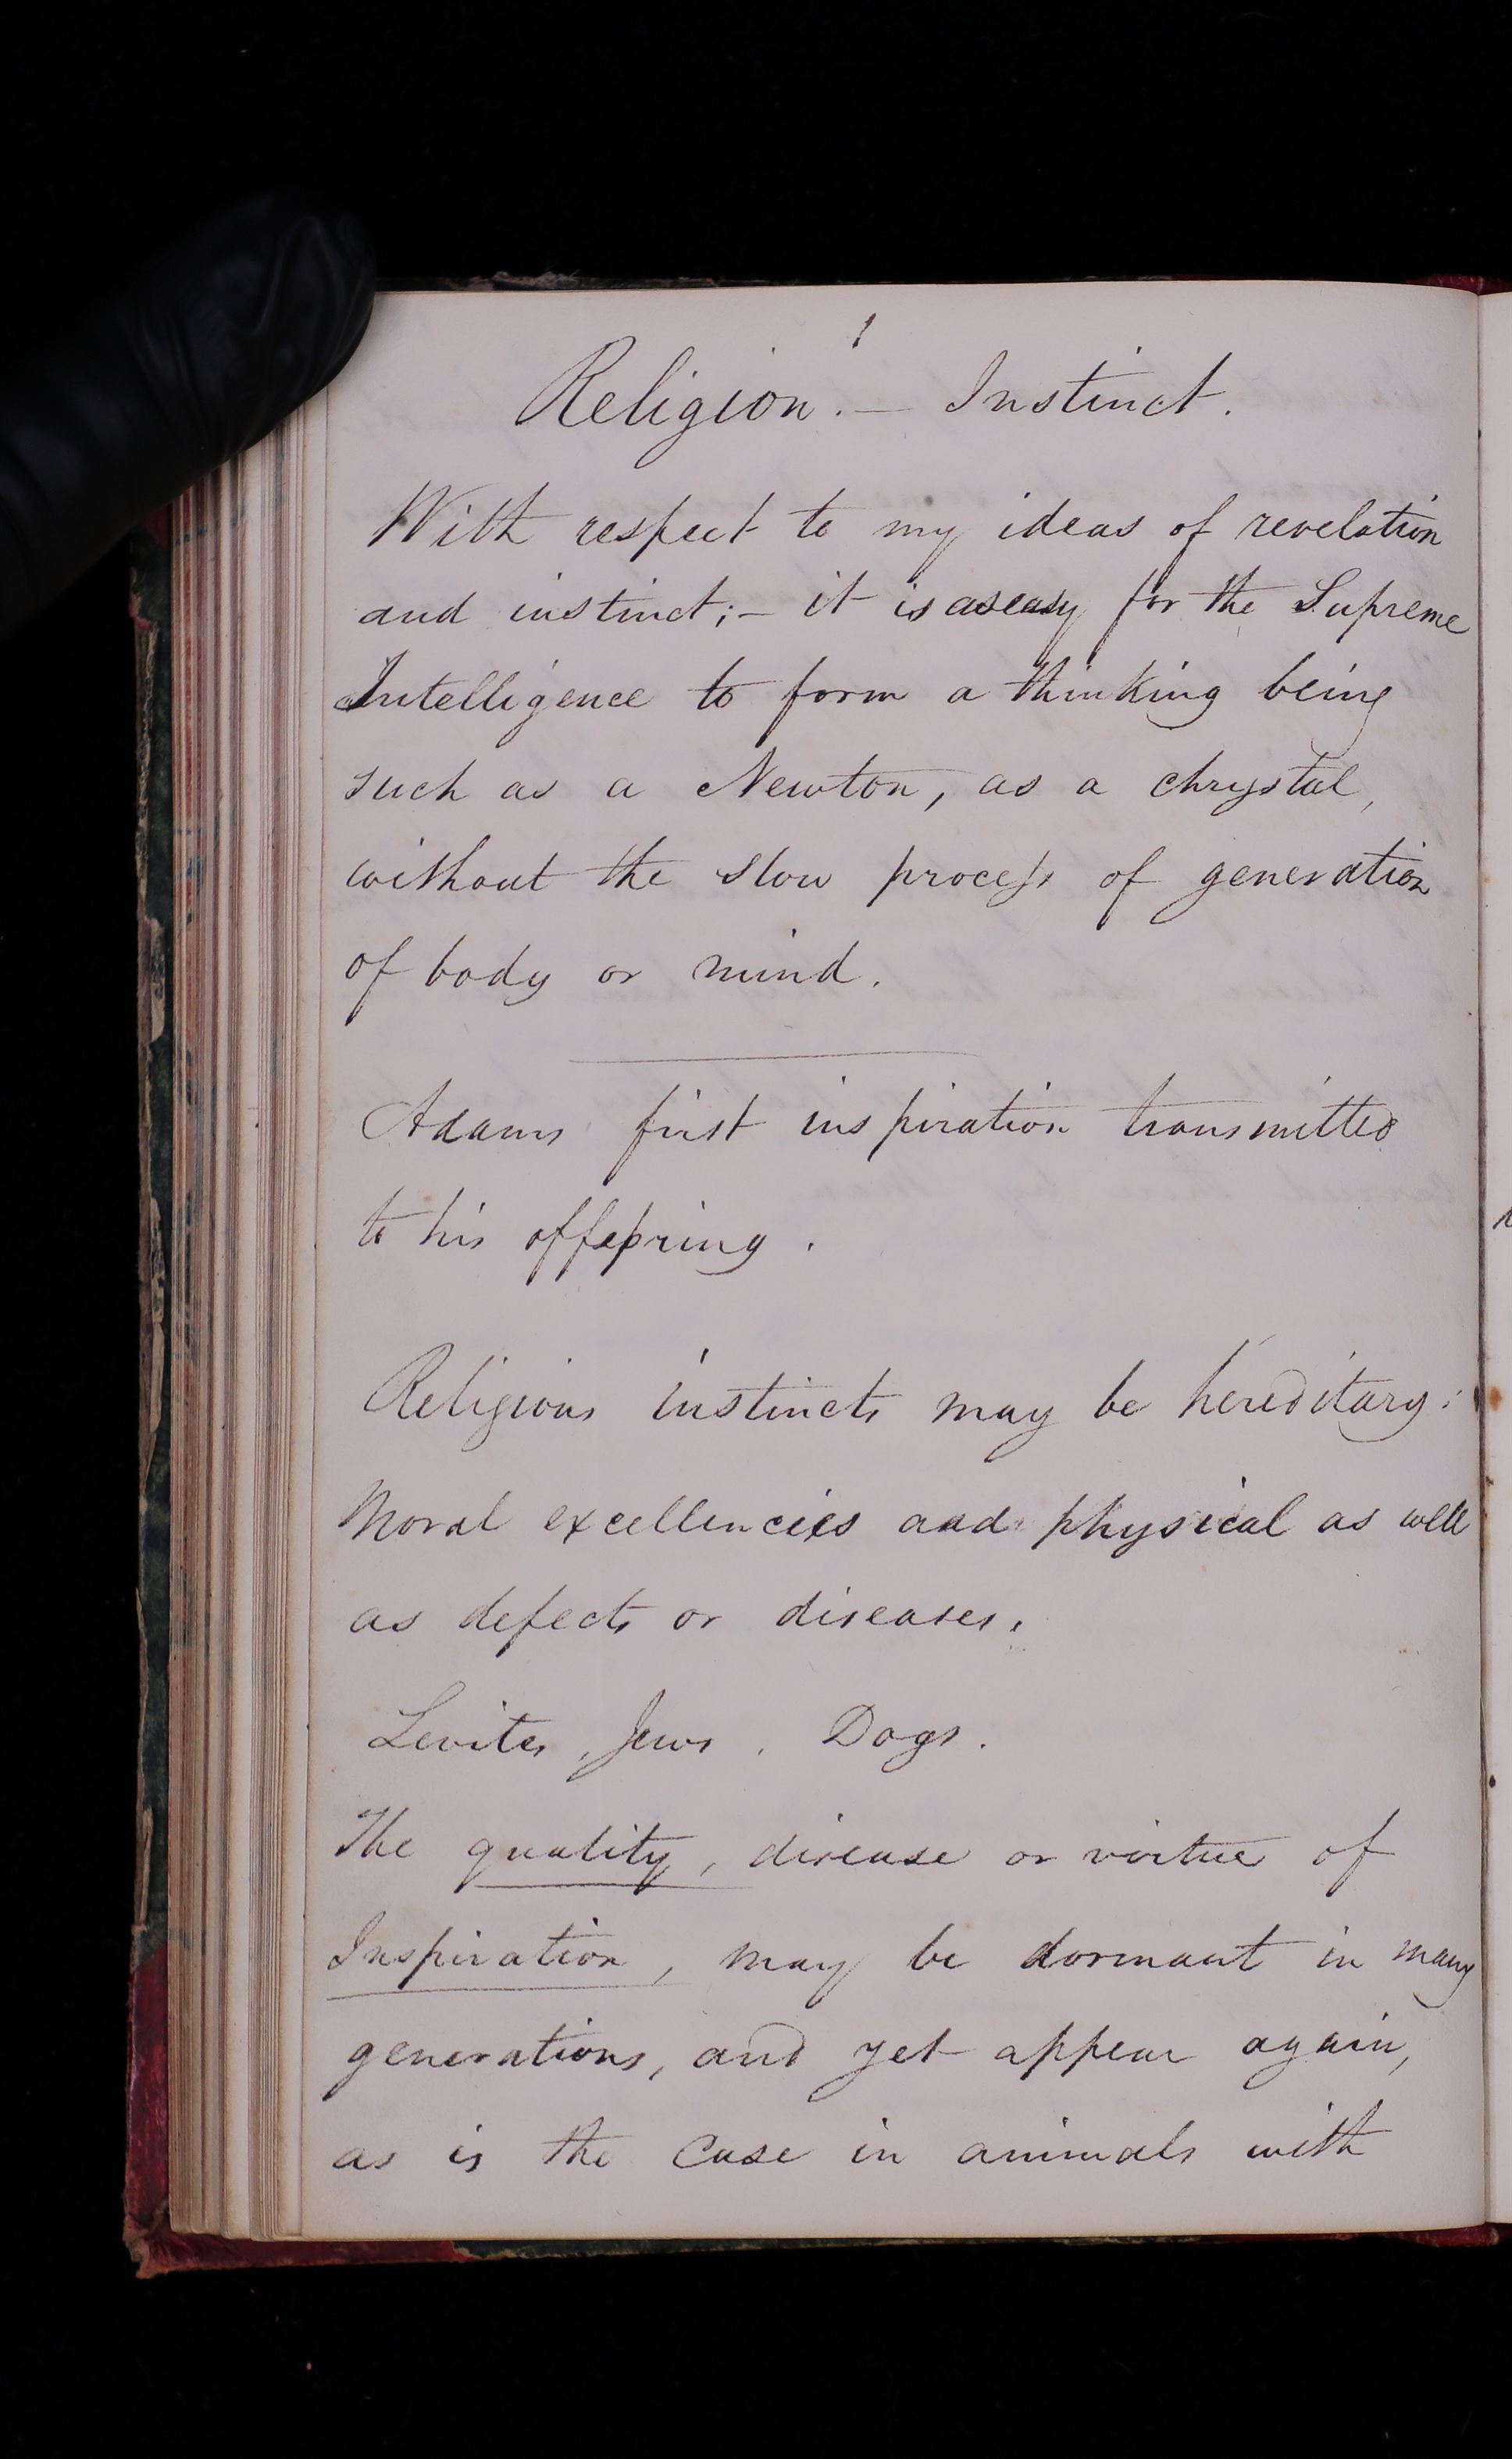 1
Religion. — Instinct.
With respect to my ideas of revelation
and instinct; — it is as easy for the Supreme
Intelligence to form a thinking being
such as a Newton, as a chrystal,
without the slow process of generation
of body or mind.
Adams first inspiration transmitted
to his offspring.
Religious instincts may be hereditary:
Moral excellencies and physical as well
as defects or diseases.
Levites, Jews, Dogs.
The quality, disease or virtue of
Inspiration, may be dormant in many
generations, and yet appear again,
as is the case in animals with